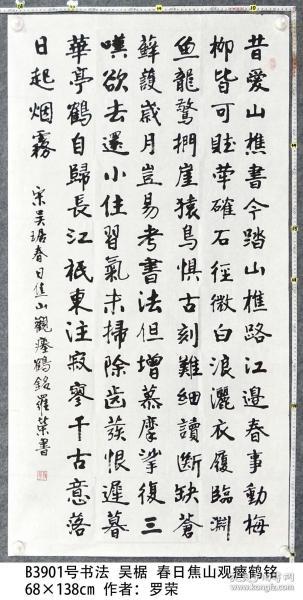 昔愛山樵書今踏山樵路江邊春事動梅
柳皆可賦犖確石徑微白浪灑衣履臨淵
魚龍驚捫崖猿鳥懼古刻難細讀斷缺蒼
蘚護歲月豈易考書法但增慕摩挲復三
嘆欲去還小住習氣未掃除齒髮恨遲暮
華亭鶴自歸長江祇東注寂寥千古意落
日起烟霧
宋吴琚春日焦山觀瘞鶴銘羅榮書
B3901号书法 吴椐 春日焦山观瘗鹤铭
68×138cm 作者：罗荣